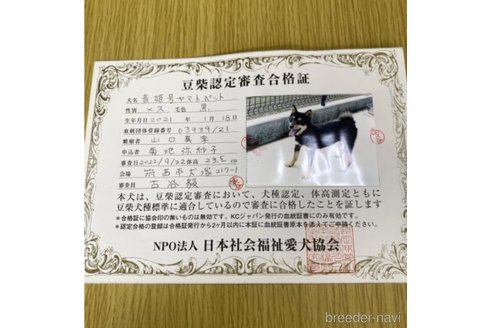 豆柴認定審査合格証
犬名 青姫号ヤマトペット
性別 メス 毛色 黒
生年月日 2021年 1月18日
血統団体登録番号 03939/21
繁殖者 山口
申込者 菊地
審査日 2022/9/22 体高 23.5cm
会場 217-1
審査員 古谷
本犬は、豆柴認定審査において、犬種認定、体高測定ともに
豆柴犬種標準に適合しているので審査に合格したことを証します
*合格証に協会印の無いものは無効です。KCジャパン発行の血統証書にのみ有効です。
*認定合格の登録は合格証発行から2ヶ月以内に本証に血統証書原本を添えてご申請ください。
NPO法人 日本社会福祉愛犬協会
breeder-navi